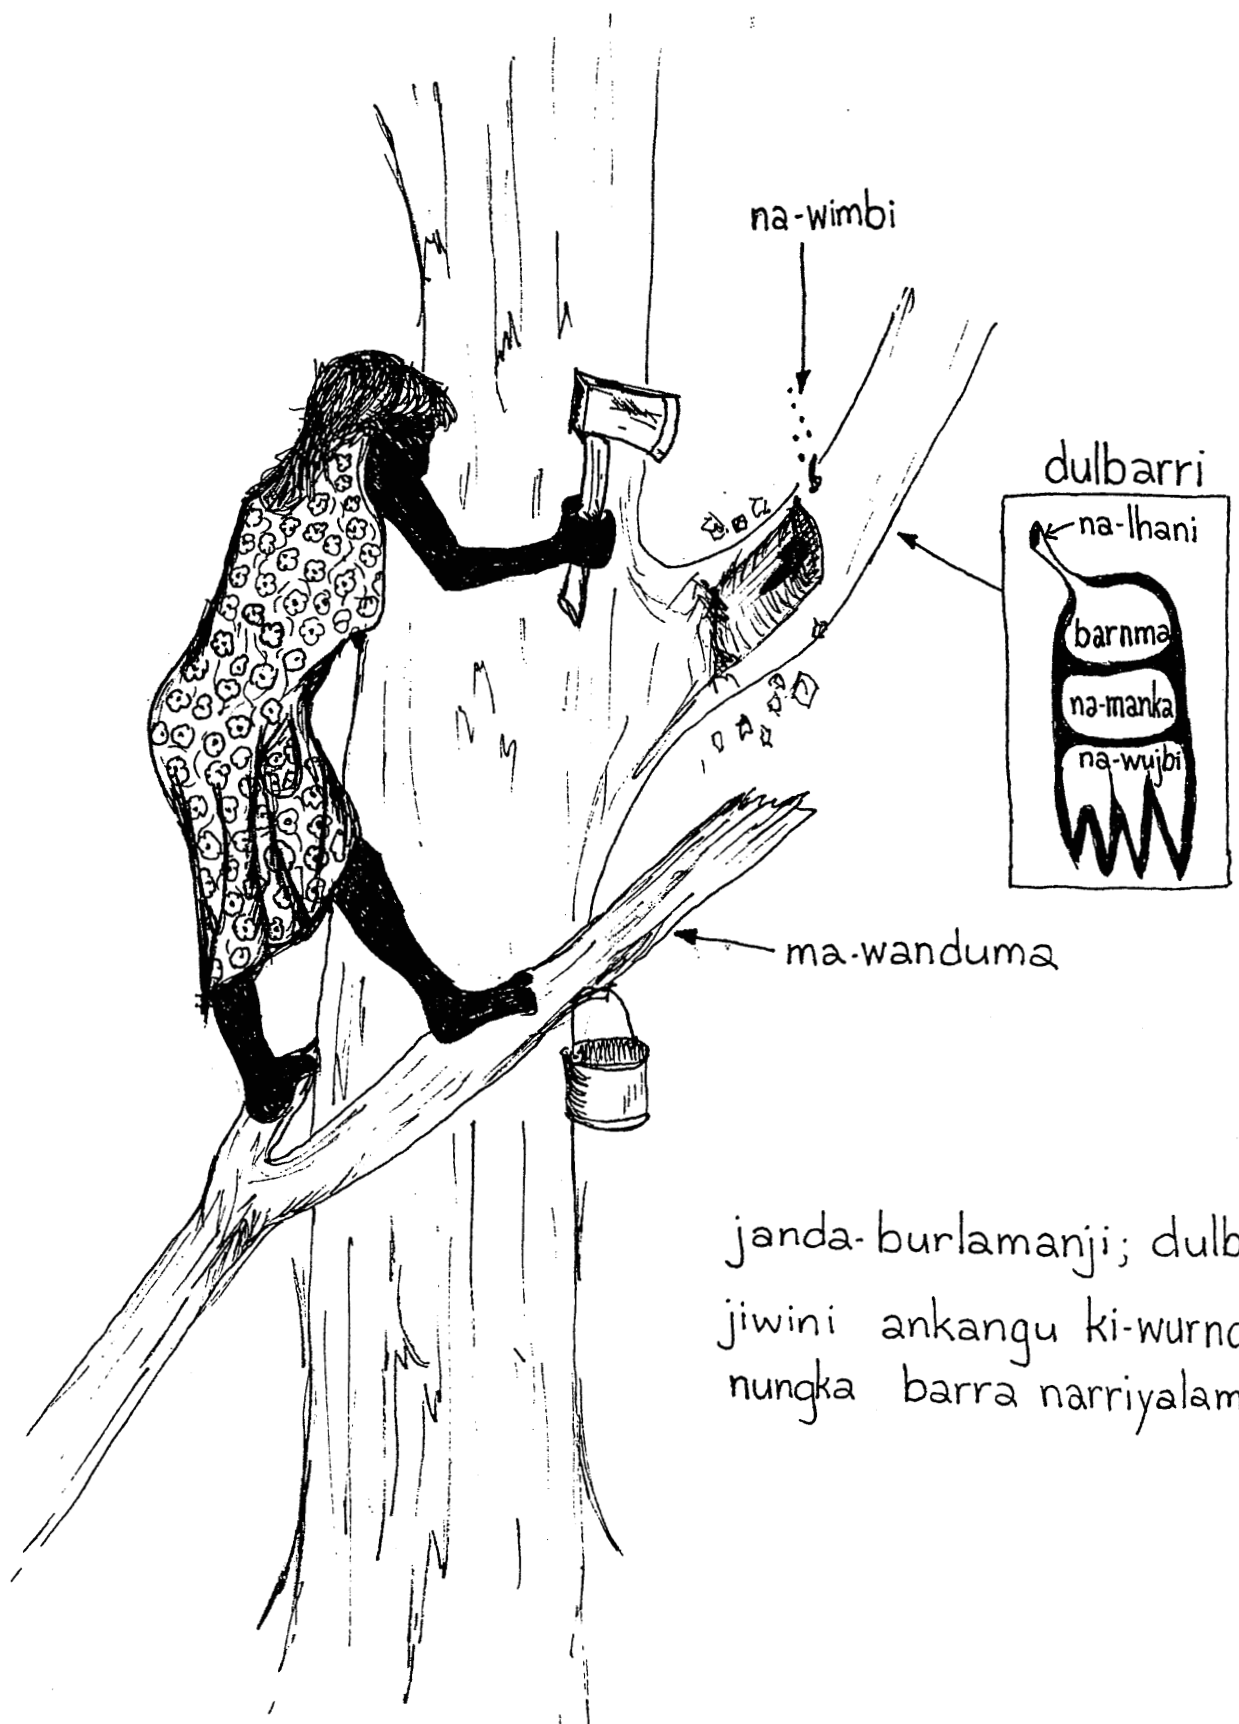 na-wimbi
dulbarri
na-lhani
barnma
na-manka
na-wujbi
ma-wanduma
janda-burlamanji;
jiwini ankangu
nungka barra